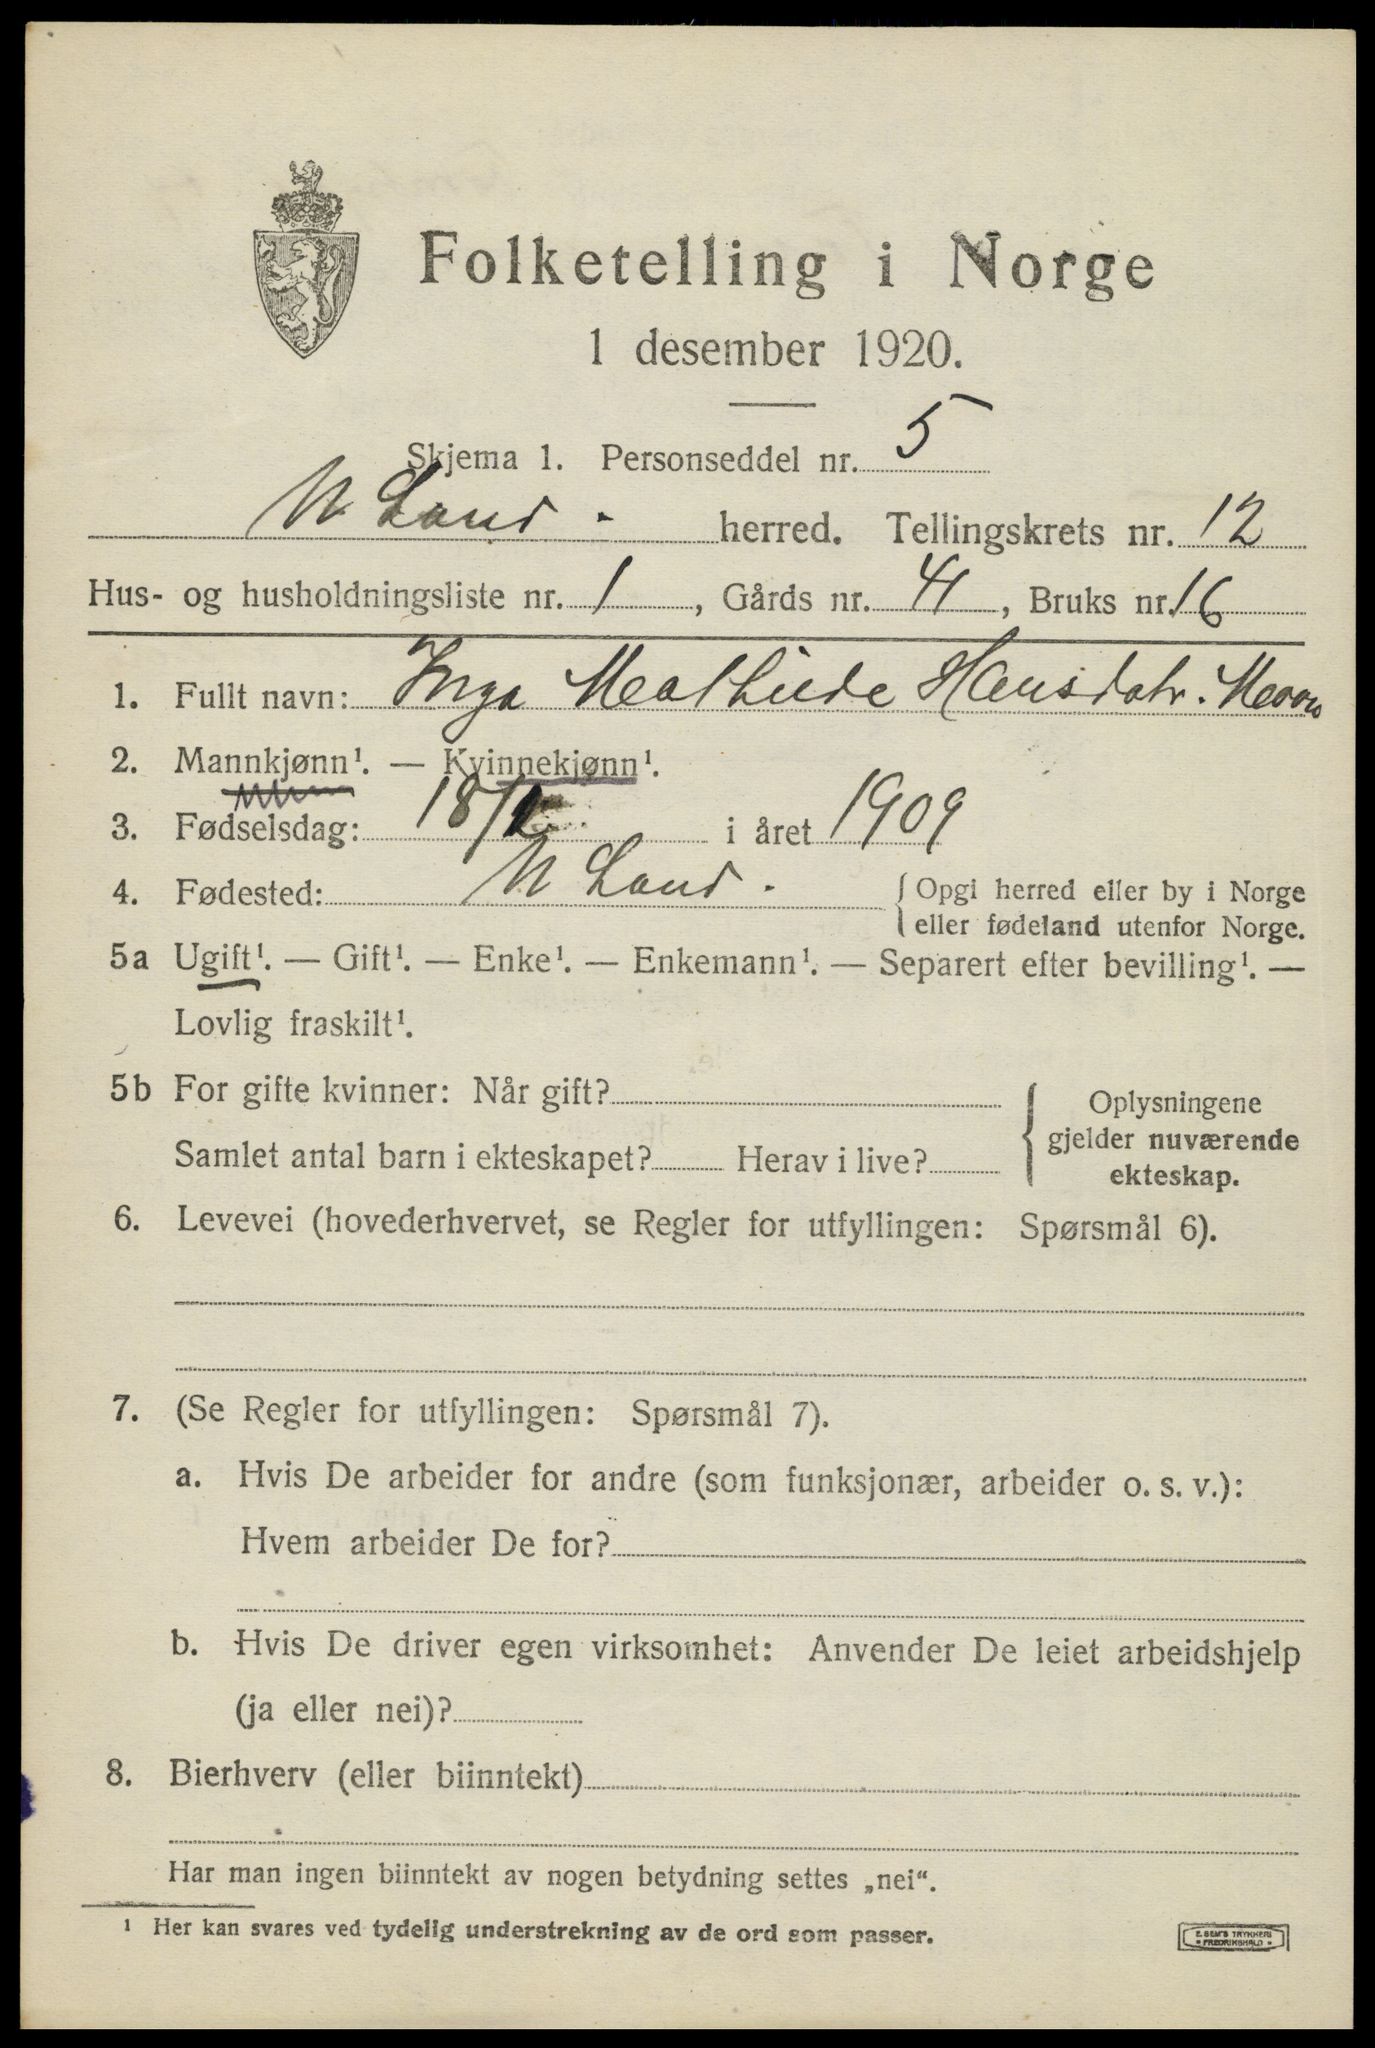 Folketelling i Norge
1 desember 1920.
Skjema 1. Personseddel nr. 5
N. Land. herred. Tellingskrets nr. 12
Hus- og husholdningsliste nr. 1, Gårds nr. 41, Bruks nr. 16
1. Fullt navn: Inga Mathilde Hansdatr.
2. Mannkjønn¹. — Kvinnekjønn¹.
3. Fødselsdag: 18/ i året 1909
4. Fødested: N Land. Opgi herred eller by i Norge
eller fødeland utenfor Norge.
5a Ugift¹. — Gift¹. — Enke¹. — Enkemann¹. — Separert efter bevilling¹. —
Lovlig fraskilt¹.
5b For gifte kvinner: Når gift?
Samlet antal barn i ekteskapet? Herav i live?
Oplysningene
gjelder nuværende
ekteskap.
6. Levevei (hovederhvervet, se Regler for utfyllingen: Spørsmål 6).
7. (Se Regler for utfyllingen: Spørsmål 7).
a. Hvis De arbeider for andre (som funksjonær, arbeider o. s. v.):
Hvem arbeider De for?
b. Hvis De driver egen virksomhet: Anvender De leiet arbeidshjelp
(ja eller nei)?
8. Bierhverv (eller biinntekt)
Har man ingen biinntekt av nogen betydning settes „nei“.
¹ Her kan svares ved tydelig understrekning av de ord som passer.
E. SEM'S TRYKKERI
• FREDRIKSHALD •